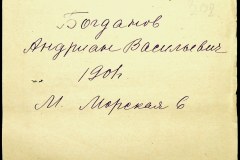 Богданов
Андриан Васильевич
1901.
М. Морская 6